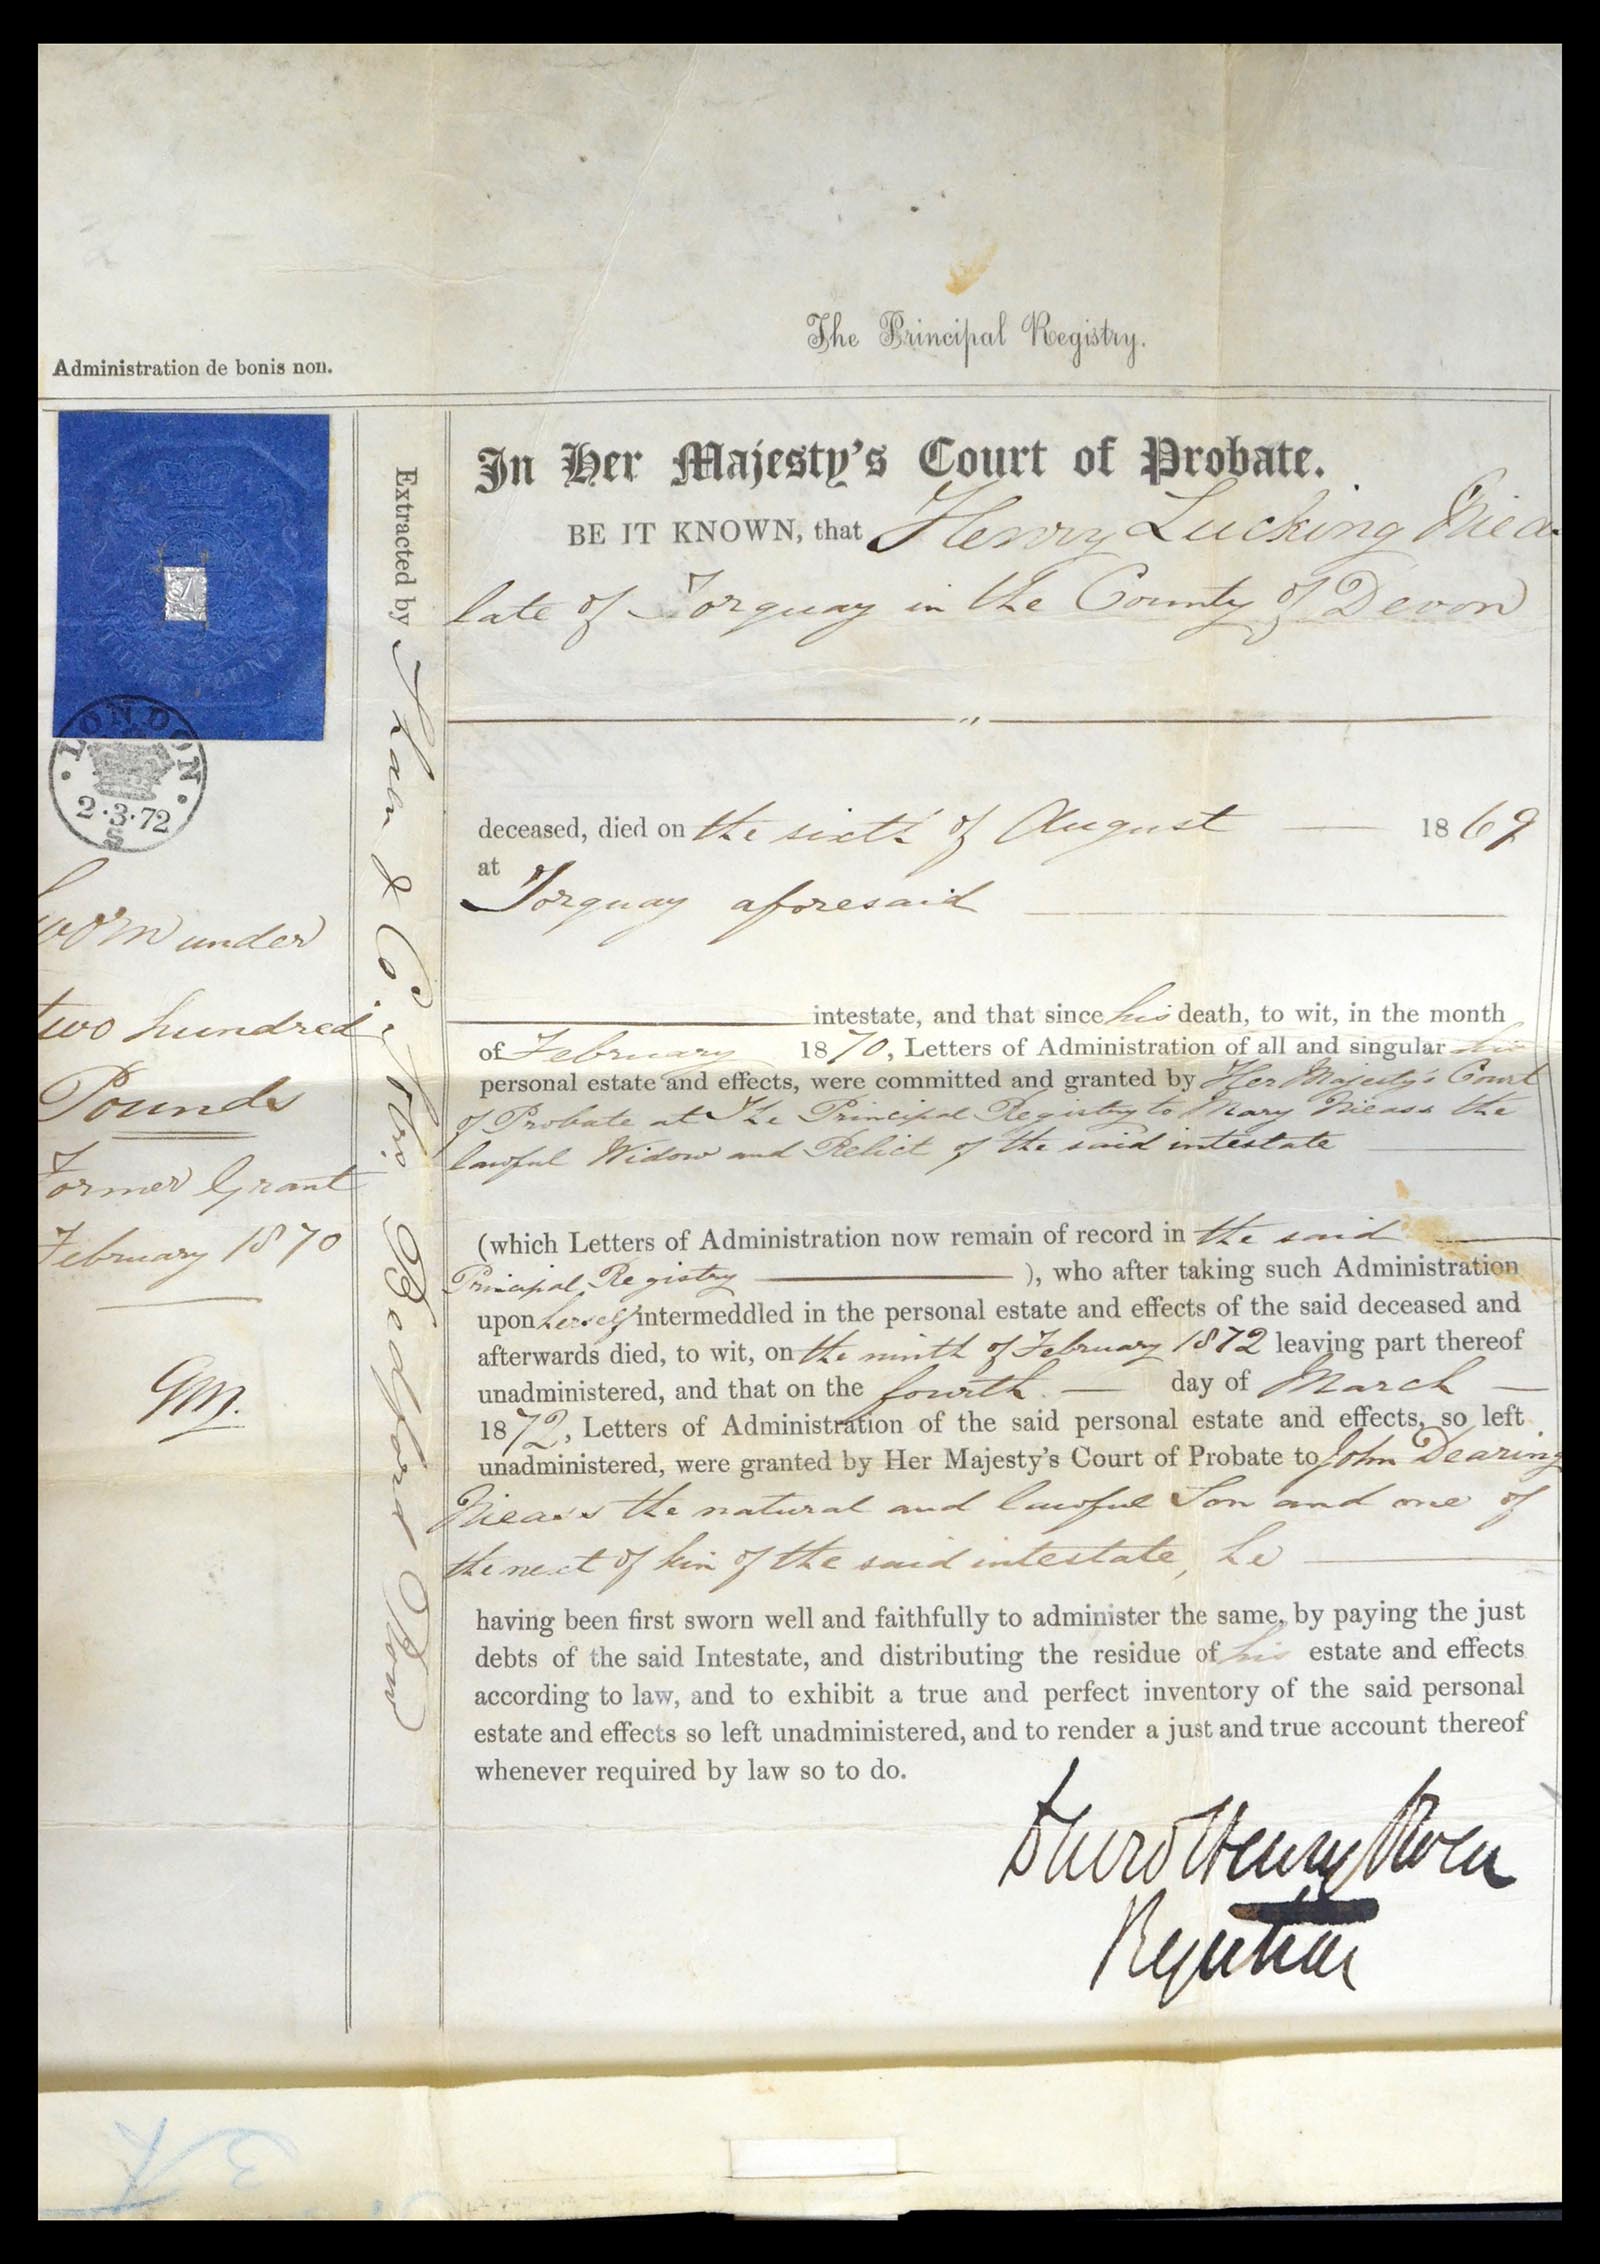 The Principal Registry.
Administration de bonis non.
In Her Majesty's Court of Probate.
BE IT KNOWN, that Henry Lucking
late of Torquay in the County of Devon
deceased, died on the sixth of August 1869
at
Torquay aforesaid
intestate, and that since his death, to wit, in the month
of February 1870, Letters of Administration of all and singular his
personal estate and effects, were committed and granted by Her Majesty's Court
of Probate at The Principal Registry to Mary Nicass the
lawful Widow and Relict of the said intestate
(which Letters of Administration now remain of record in the said
Principal Registry ), who after taking such Administration
upon herself intermeddled in the personal estate and effects of the said deceased and
afterwards died, to wit, on the ninth of February 1872 leaving part thereof
unadministered, and that on the fourth day of March
1872, Letters of Administration of the said personal estate and effects, so left
unadministered, were granted by Her Majesty's Court of Probate to John Dearing
Nicass the natural and lawful Son and one of
the next of kin of the said intestate, he
having been first sworn well and faithfully to administer the same, by paying the just
debts of the said Intestate, and distributing the residue of his estate and effects
according to law, and to exhibit a true and perfect inventory of the said personal
estate and effects so left unadministered, and to render a just and true account thereof
whenever required by law so to do.
Henry
Registrar
Extracted by & Co. Bedford Row
LONDON
2.3.72
S
under
two hundred
Pounds
Former Grant
February 1870
GM.